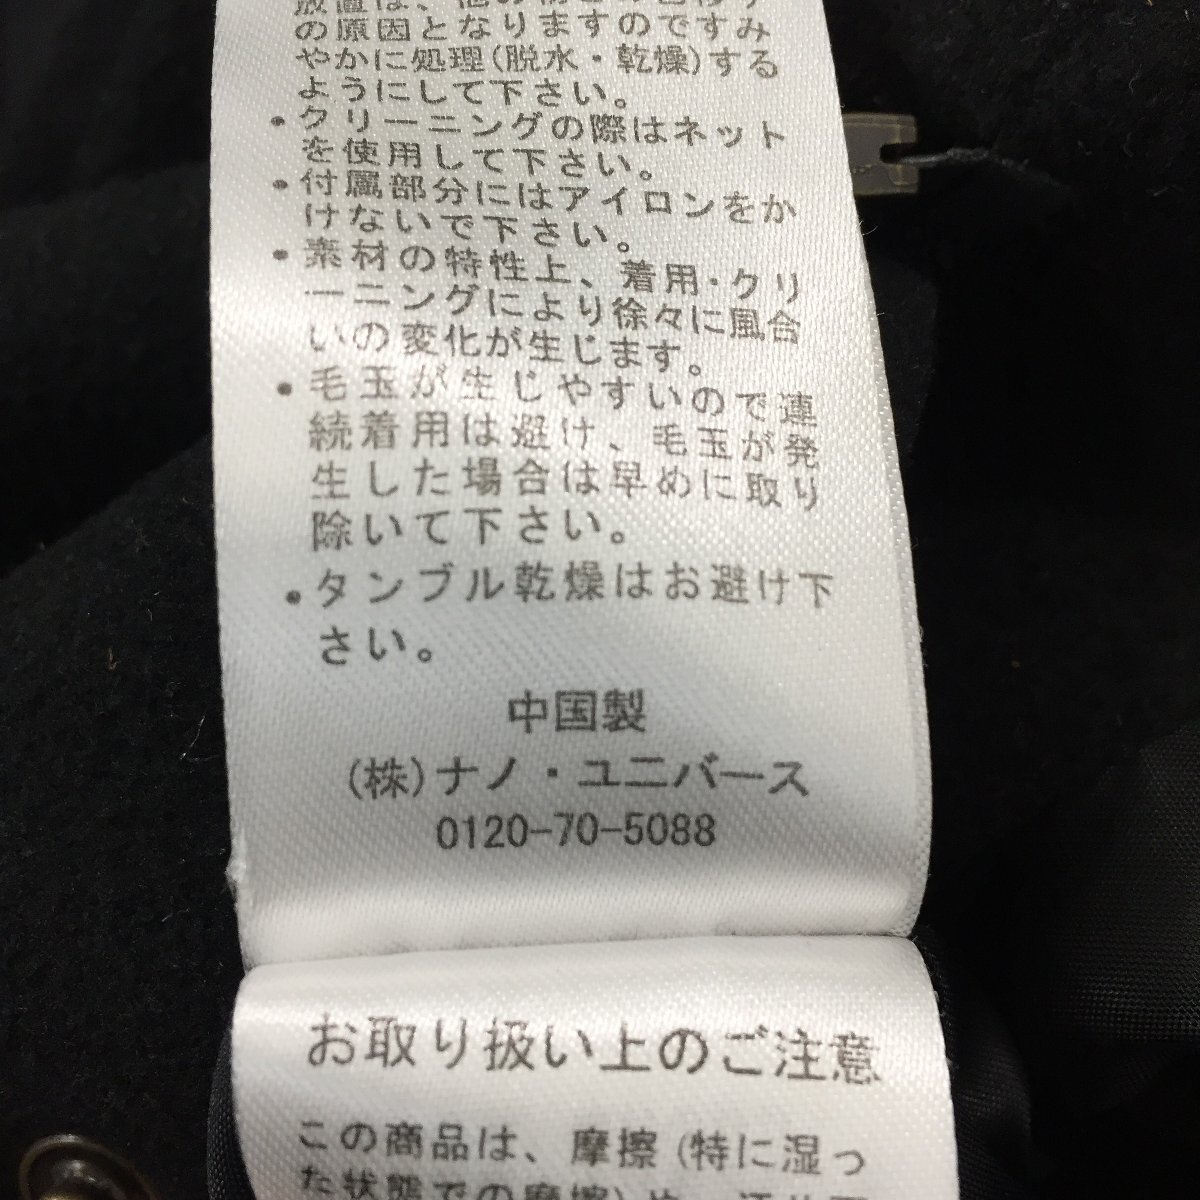 の原因となりますのですみ
やかに処理(脱水・乾燥)する
ようにして下さい。
・クリーニングの際はネット
を使用して下さい。
・付属部分にはアイロンをか
けないで下さい。
・素材の特性上、着用・クリ
ーニングにより徐々に風合
いの変化が生じます。
・毛玉が生じやすいので連
続着用は避け、毛玉が発
生した場合は早めに取り
除いて下さい。
・タンブル乾燥はお避け下
さい。
中国製
(株)ナノ・ユニバース
0120-70-5088
お取り扱い上のご注意
この商品は、摩擦(特に湿っ
た状態での摩擦)や、